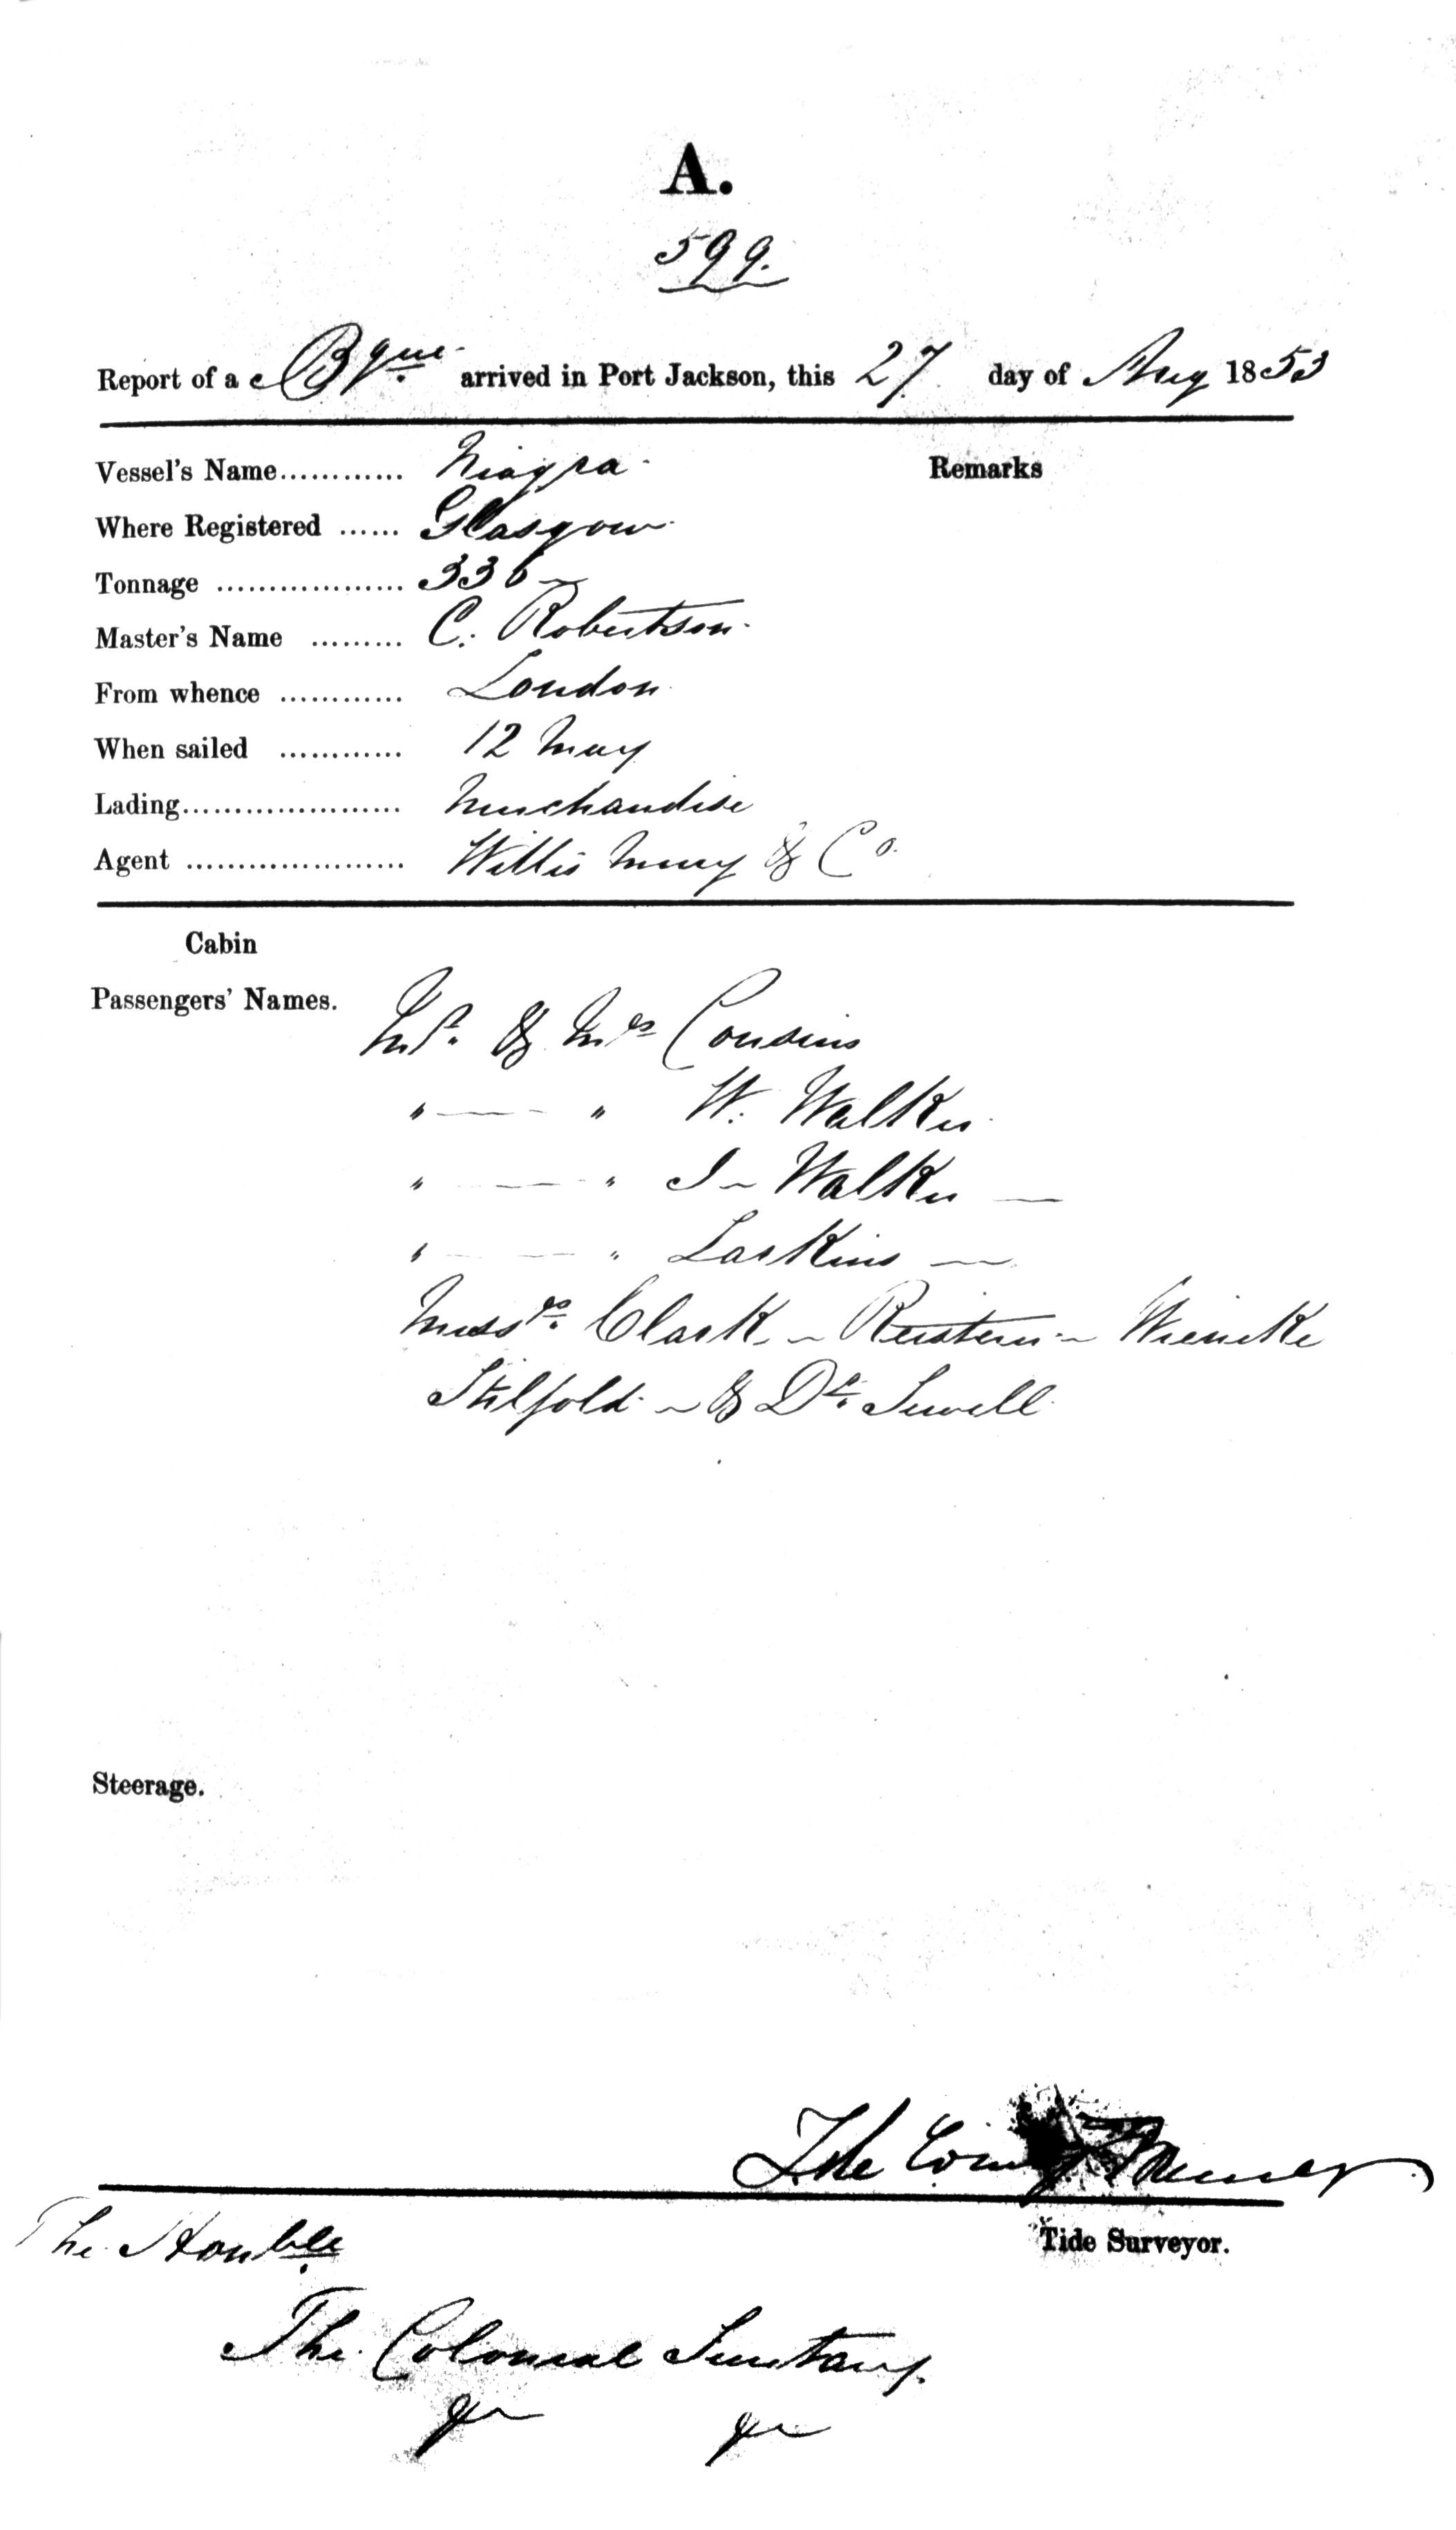 A.
599.
Report of a Bque. arrived in Port Jackson, this 27 day of Aug 1853
Vessel's Name............ Niagra Remarks
Where Registered ...... Glasgow
Tonnage .................. 336
Master's Name ......... C. Robertson
From whence ............ London
When sailed ............ 12 May
Lading..................... Merchandise
Agent ..................... Willis Merry & Co.
Cabin
Passengers' Names.
Mr. & Mrs Cousins
" — " W. Walker
" — " J Walker —
" — " Larkins —
Messrs. Clark - - Wieneke
- & Dr. Sewell
Steerage.
Tide Surveyor.
The Honble
The Colonial Secretary
&c &c